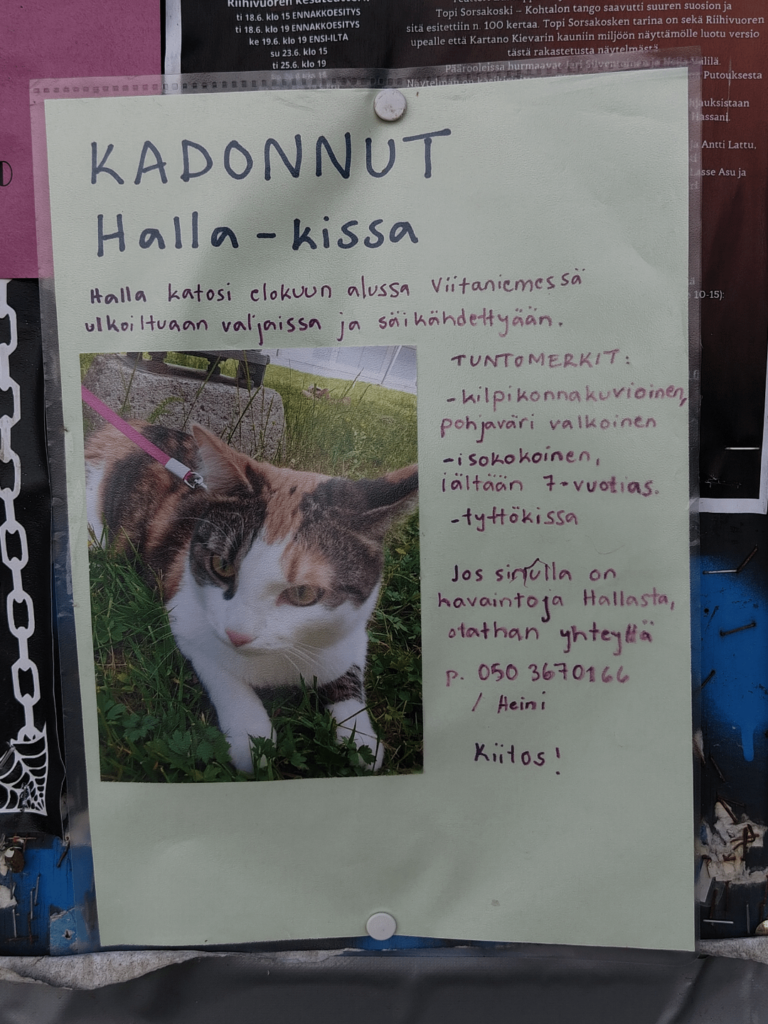 Riihivuoren kesäteatteri
ti 18.6. klo 15 ENNAKKOESITYS
ti 18.6. klo 19 ENNAKKOESITYS
ke 19.6. klo 19 ENSI-ILTA
su 23.6. klo 15
ti 25.6. klo 19
Topi Sorsakoski – Kohtalon tango saavutti suuren suosion ja
sitä esitettiin n. 100 kertaa. Topi Sorsakosken tarina on sekä Riihivuoren
upealle että Kartano Kievarin kauniin miljöön näyttämölle luotu versio
tästä rakastetusta näytelmästä.
Päärooleissa hurmaavat Jari
Putouksesta
Hassani.
Antti Lattu,
Lasse Asu ja
10-15):
KADONNUT
Halla-kissa
Halla katosi elokuun alussa Viitaniemessä
ulkoiltuaan valjaissa ja säikähdettyään.
TUNTOMERKIT:
-kilpikonnakuvioinen,
pohjaväri valkoinen
-isokokoinen,
iältään 7-vuotias.
-tyttökissa
Jos sinulla on
havaintoja Hallasta,
otathan yhteyttä
p. 050 3670166
/ Heini
Kiitos!